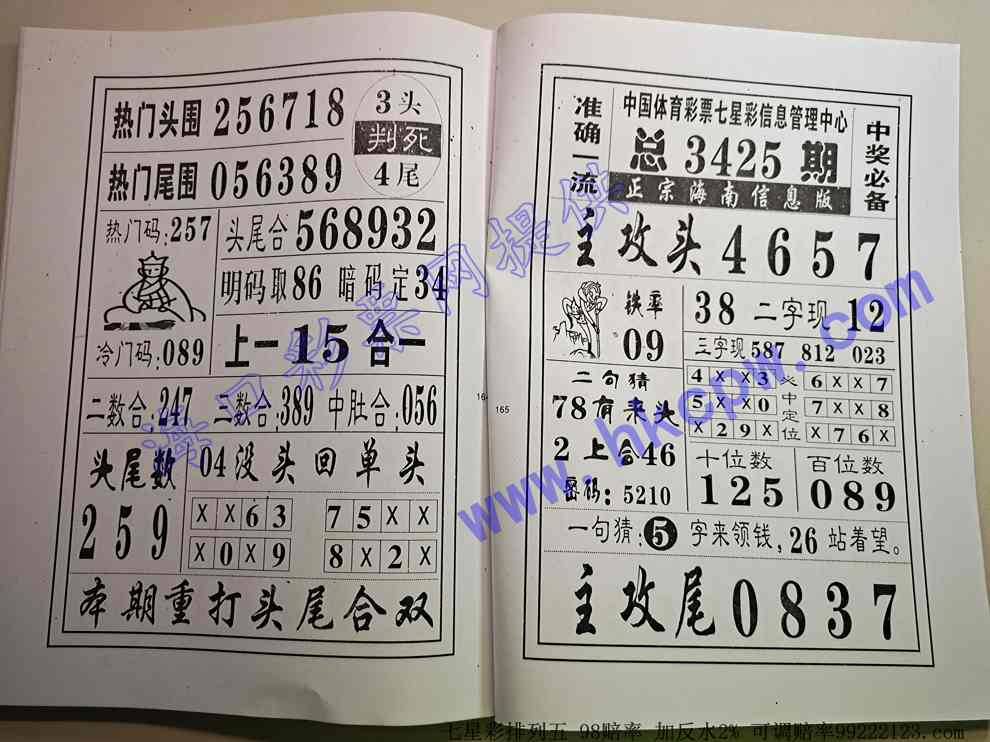 热门头围 256718
3头
判死
4尾
热门尾围 056389
热门码:257
头尾合 568932
明码取86 暗码定34
冷门码:089
上一15合一
二数合:247 三数合:389 中肚合:056
头尾数
259
04没头回单头
XX63 75XX
X0X9 8X2X
本期重打头尾合双
164
165
准确一流
中国体育彩票七星彩信息管理中心
总 3425 期
正宗海南信息版
中奖必备
主攻头 4657
铁率
09
38 二字现 12
三字现 587 812 023
二句猜
78有来头
2上合46
密码:5210
4XX3 6XX7
5XX0 7XX8
X29X X76X
奖中定位
十位数
125
百位数
089
一句猜:5字来领钱,26站着望。
主攻尾 0837
海口彩票网提供
www.hkcpw.com
七星彩排列五 98赔率 加反水2% 可调赔率99222123.com